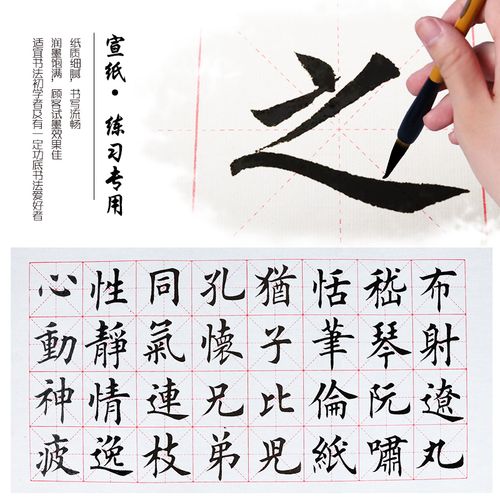 之
宣纸·练习专用
纸质细腻，书写流畅
润墨饱满，顾客试墨效果佳
适宜书法初学者及有一定功底书法爱好者
布射遼丸
嵇琴阮嘯
恬筆倫紙
猶子比兒
孔懷兄弟
同氣連枝
性靜情逸
心動神疲